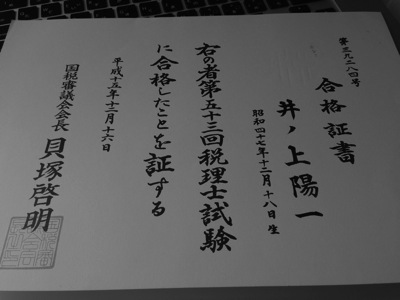 第三九二八四号
合格証書
井ノ上陽一
昭和四十七年十二月十八日生
右の者第五十三回税理士試験
に合格したことを証する
平成十五年十二月十六日
国税審議会会長 貝塚啓明